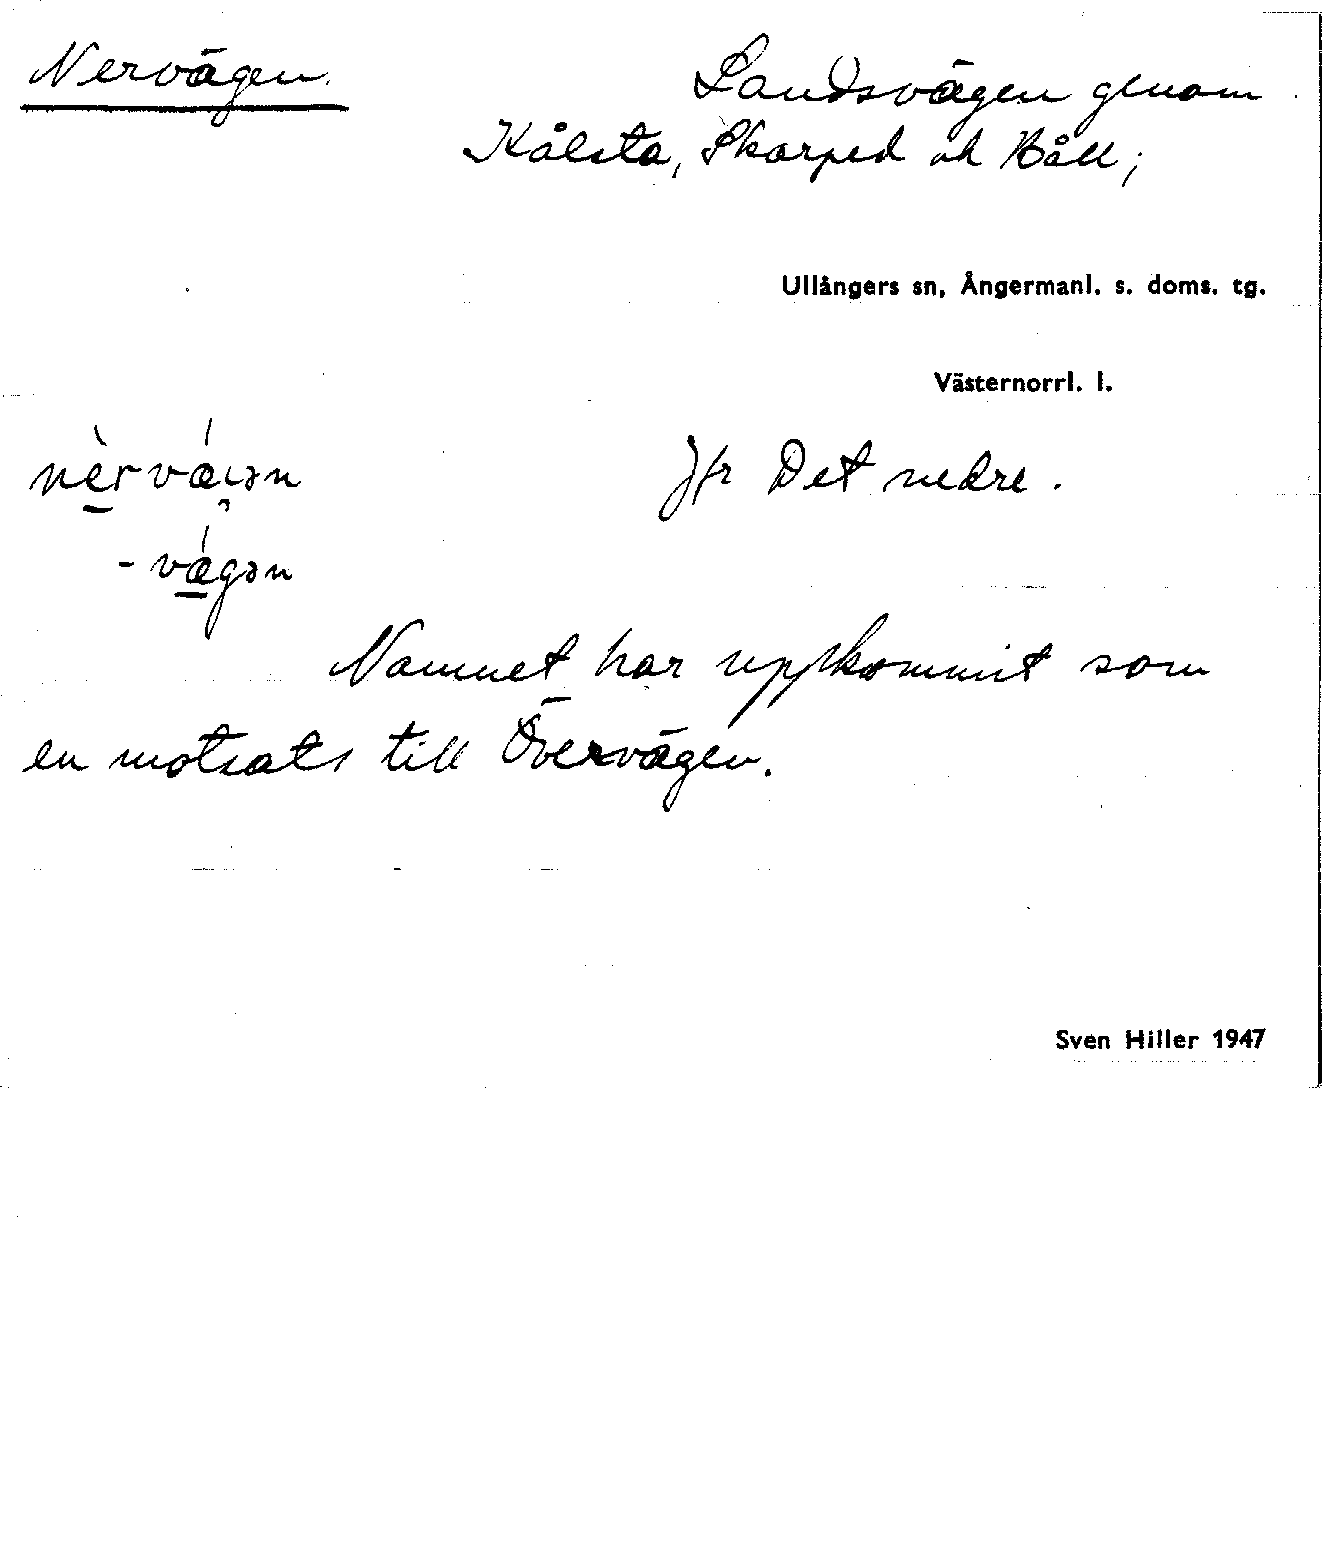 Nervägen.
Landsvägen genom
Kålsta, Skarped och Båll;
Ullångers sn, Ångermanl. s. doms. tg.
Västernorrl. l.
Jfr Det nedre.
-vǽgən
Namnet har uppkommit som
en motsats till Övervägen.
Sven Hiller 1947